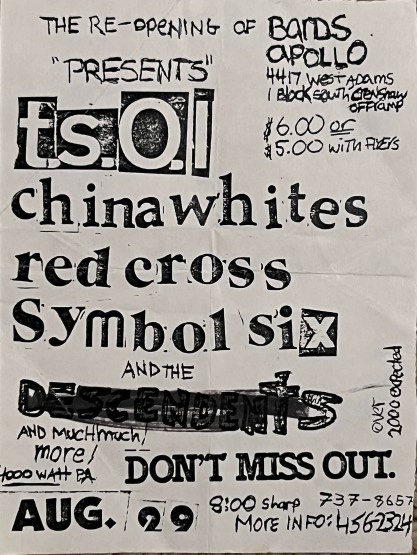 THE RE-OPENING OF BARDS
APOLLO
"PRESENTS"
4417 West ADAMS
1 Block south CRENSHAW
OFFramp
$6.00 or
$5.00 with FLYERS
t.s.O.l
chinawhites
red cross
Symbol six
AND THE
DESCENDENTS
AND Muchmuch/
more/
1000 WATT PA
OVER
2000 expected
DON'T MISS OUT.
AUG. 29
8:00 sharp 737-8657
MORE INFO: 456-2324